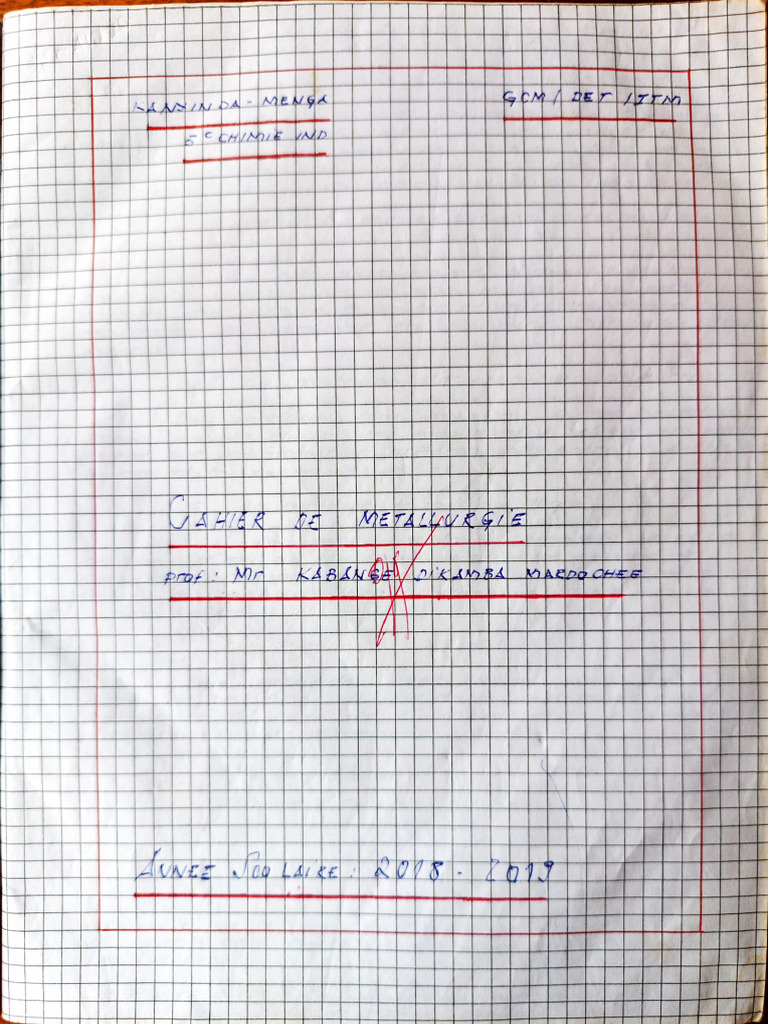 KANYINDA-MENGA
GCM / DET / ITM
5e CHIMIE IND
CAHIER DE METALLURGIE
prof: Mr KABANGE DIKAMBA MARDOCHEE
ANNEE SCOLAIRE: 2018 - 2019